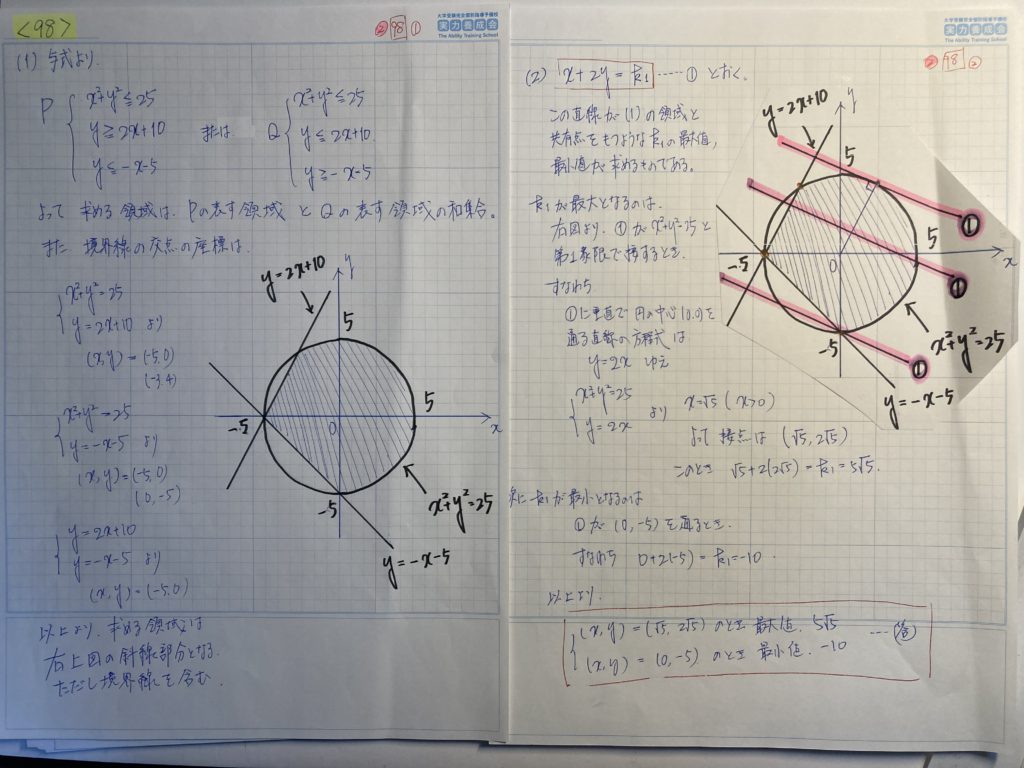 <98>
大学受験完全個別指導予備校
実力養成会
The Ability Training School
② 98 ①
(1) 与式より.
P { x²+y²≦25
y≧2x+10
y≦-x-5
または
Q { x²+y²≦25
y≦2x+10
y≧-x-5
よって 求める領域は、Pの表す領域とQの表す領域の和集合。
また 境界線の交点の座標は.
{ x²+y²=25
y=2x+10 より
(x,y)=(-5,0)
(-3,4)
{ x²+y²=25
y=-x-5 より
(x,y)=(-5,0)
(0,-5)
{ y=2x+10
y=-x-5 より
(x,y)=(-5,0)
以上より、求める領域は
右上図の斜線部分となる.
ただし境界線を含む.
y=2x+10
y
5
-5
0
5
x
-5
x²+y²=25
y=-x-5
大学受験完全個別指導予備校
実力養成会
The Ability Training School
② 98 ②
(2) x+2y=k₁ ……① とおく。
この直線が(1)の領域と
共有点をもつようなk₁の最大値,
最小値が求めるものである。
k₁が最大となるのは.
右図より. ①がx²+y²=25と
第1象限で接するとき.
すなわち
①に垂直で円の中心(0,0)を
通る直線の方程式は
y=2x ゆえ
{ x²+y²=25
y=2x より x=√5 (x>0)
よって 接点は (√5, 2√5)
このとき √5+2(2√5)=k₁=5√5.
次にk₁が最小となるのは
①が(0,-5)を通るとき.
すなわち 0+2(-5)=k₁=-10.
以上より.
{ (x,y)=(√5, 2√5) のとき 最大値. 5√5
(x,y)=(0,-5) のとき 最小値. -10
…(答)
y=2x+10
y
5
①
-5
0
5
x
①
-5
x²+y²=25
①
y=-x-5